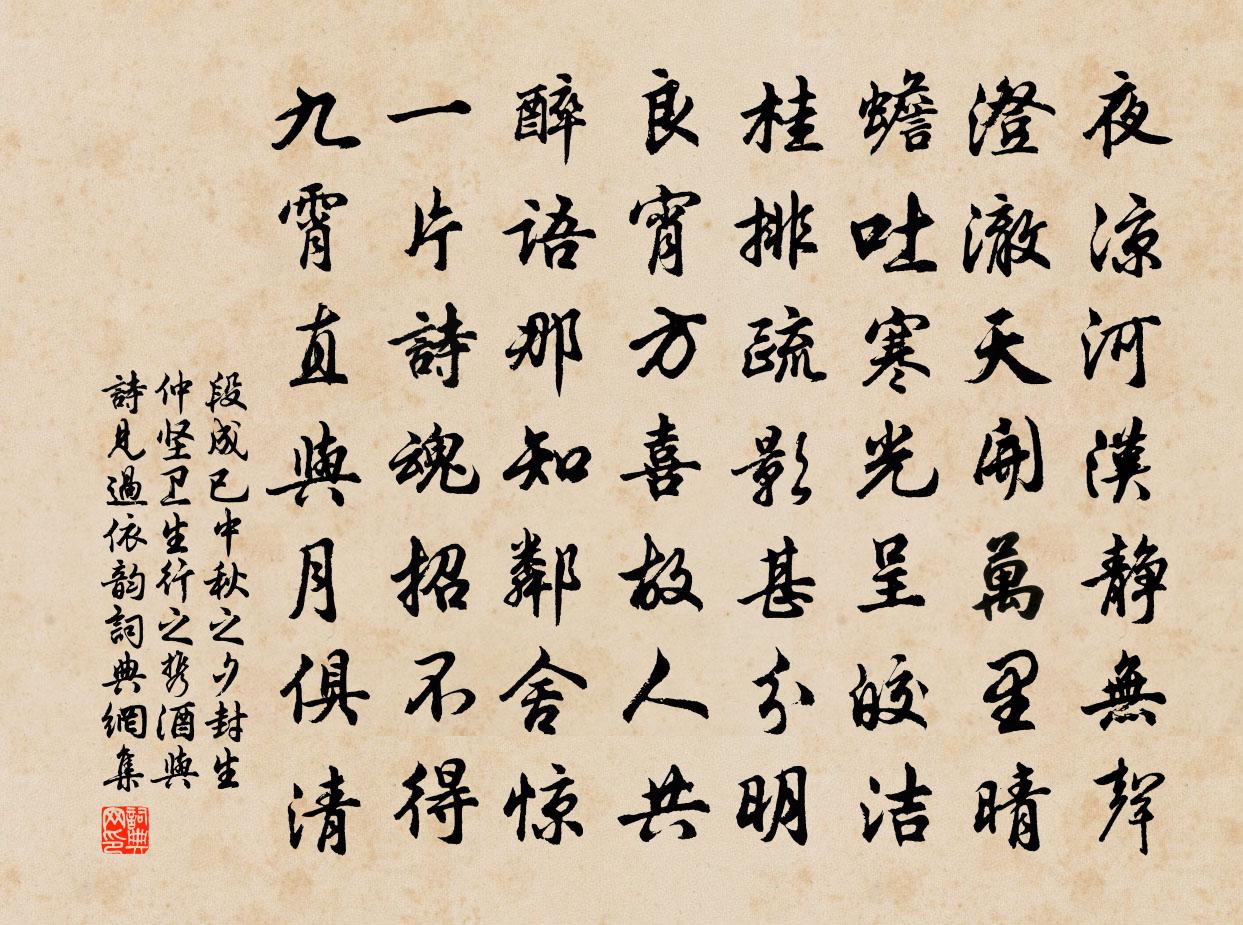 夜涼河漢静無聲
澄澈天開萬里晴
蟾吐寒光呈皎洁
桂排疏影甚分明
良宵方喜故人共
醉語那知鄰舍惊
一片詩魂招不得
九霄直與月俱清
段成己中秋之夕封生
仲坚卫生行之携酒與
詩見過依韵詞典網集
詞典网印